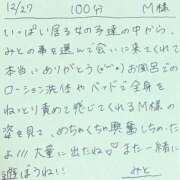 12/27 100分 M様
いっぱい居る女の子達の中から、
みとの事を選んで会いに来てくれて
本当にありがとう(о´∨`о)お風呂での
ローション洗体やベッドで全身を
ねっとり責めて感じてくれるM様の
姿を見て、めちゃくちゃ興奮しちゃった
よ!!!大量に出たね♡また一緒に
遊ぼうねい!
みと